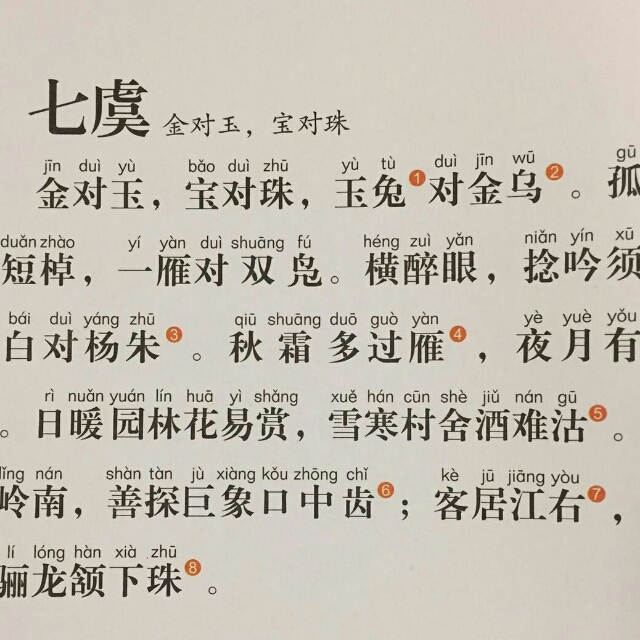 七虞 金对玉，宝对珠
jīn duì yù bǎo duì zhū yù tù duì jīn wū gū
金对玉，宝对珠，玉兔①对金乌②。孤
duǎn zhào yí yàn duì shuāng fú héng zuì yǎn niǎn yín xū
短棹，一雁对双凫。横醉眼，捻吟须
bái duì yáng zhū qiū shuāng duō guò yàn yè yuè yǒu
白对杨朱③。秋霜多过雁④，夜月有
rì nuǎn yuán lín huā yì shǎng xuě hán cūn shè jiǔ nán gū
。日暖园林花易赏，雪寒村舍酒难沽⑤。
lǐng nán shàn tàn jù xiàng kǒu zhōng chǐ kè jū jiāng yòu
岭南，善探巨象口中齿⑥；客居江右⑦，
lí lóng hàn xià zhū
骊龙颔下珠⑧。